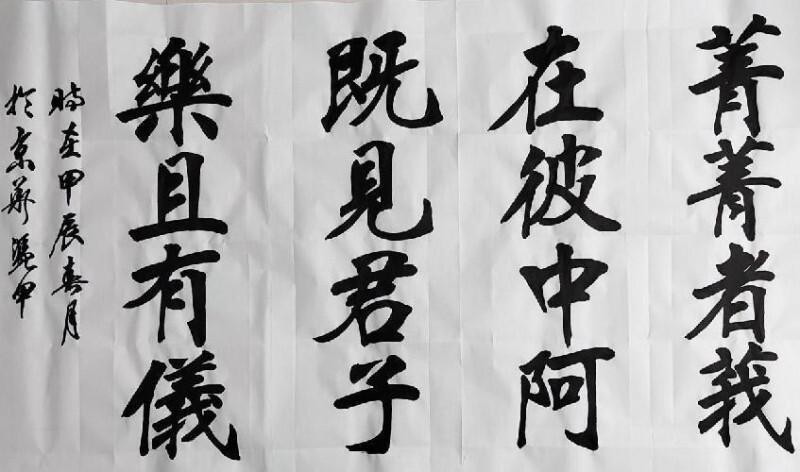 菁菁者莪
在彼中阿
既見君子
樂且有儀
時在甲辰春月
於京華